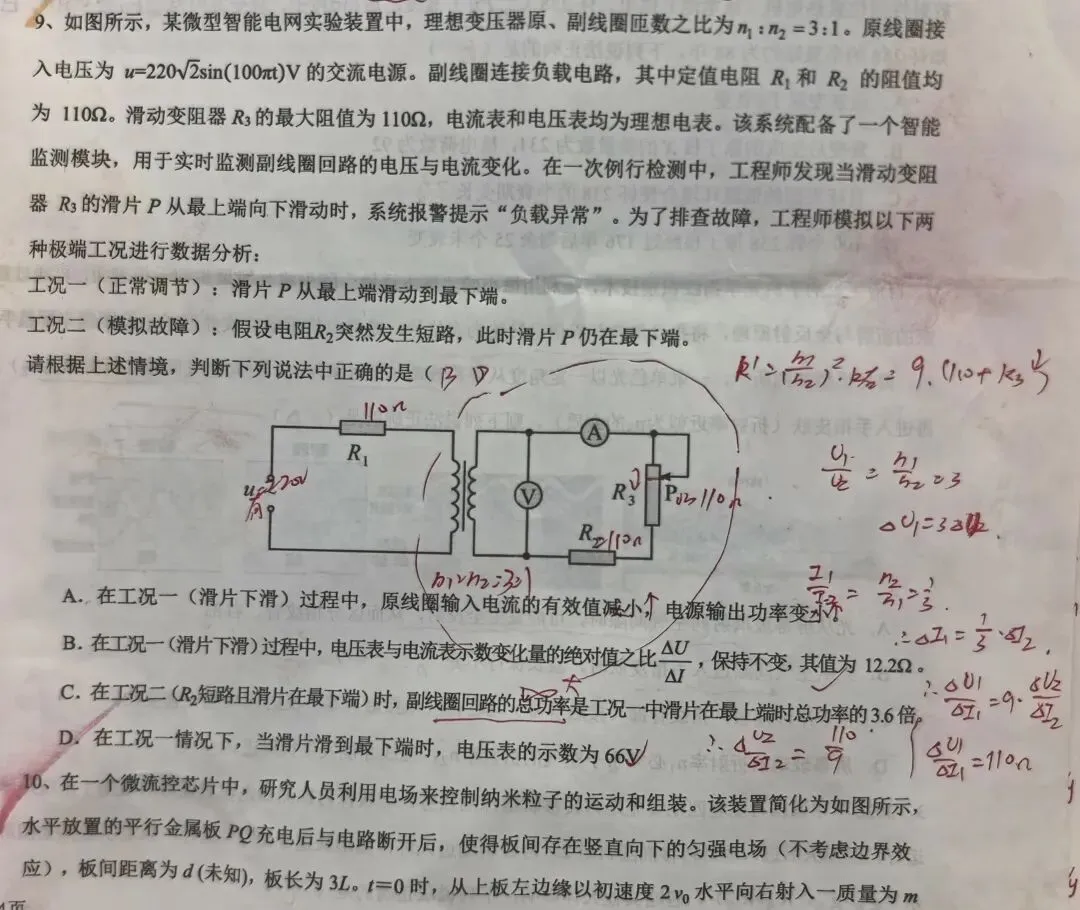 9、如图所示，某微型智能电网实验装置中，理想变压器原、副线圈匝数之比为n₁:n₂=3:1。原线圈接
入电压为 u=220√2sin(100πt)V 的交流电源。副线圈连接负载电路，其中定值电阻 R₁ 和 R₂ 的阻值均
为 110Ω。滑动变阻器 R₃ 的最大阻值为 110Ω，电流表和电压表均为理想电表。该系统配备了一个智能
监测模块，用于实时监测副线圈回路的电压与电流变化。在一次例行检测中，工程师发现当滑动变阻
器 R₃ 的滑片 P 从最上端向下滑动时，系统报警提示“负载异常”。为了排查故障，工程师模拟以下两
种极端工况进行数据分析：
工况一（正常调节）：滑片 P 从最上端滑动到最下端。
工况二（模拟故障）：假设电阻R₂突然发生短路，此时滑片 P 仍在最下端。
请根据上述情境，判断下列说法中正确的是（ B D
110Ω
R₁
A
V
R₃
P
0~110Ω
R₂
110Ω
n₁:n₂=3:1
U₁/U₂=n₁/n₂=3
I₁/I₂=n₂/n₁=1/3.
∴ΔI₁=1/3·ΔI₂.
∴ΔU₁/ΔI₁=9·ΔU₂/ΔI₂
ΔU₁/ΔI₁=110Ω
∴ΔU₂/ΔI₂=110/9
A. 在工况一（滑片下滑）过程中，原线圈输入电流的有效值减小，↑ 电源输出功率变小↑
B. 在工况一（滑片下滑）过程中，电压表与电流表示数变化量的绝对值之比ΔU/ΔI，保持不变，其值为 12.2Ω。
C. 在工况二（R₂短路且滑片在最下端）时，副线圈回路的总功率是工况一中滑片在最上端时总功率的 3.6 倍。
D. 在工况一情况下，当滑片滑到最下端时，电压表的示数为 66V
10、在一个微流控芯片中，研究人员利用电场来控制纳米粒子的运动和组装。该装置简化为如图所示，
水平放置的平行金属板 PQ 充电后与电路断开后，使得板间存在竖直向下的匀强电场（不考虑边界效
应），板间距离为 d (未知)，板长为 3L。t=0 时，从上板左边缘以初速度 2 v₀ 水平向右射入一质量为 m